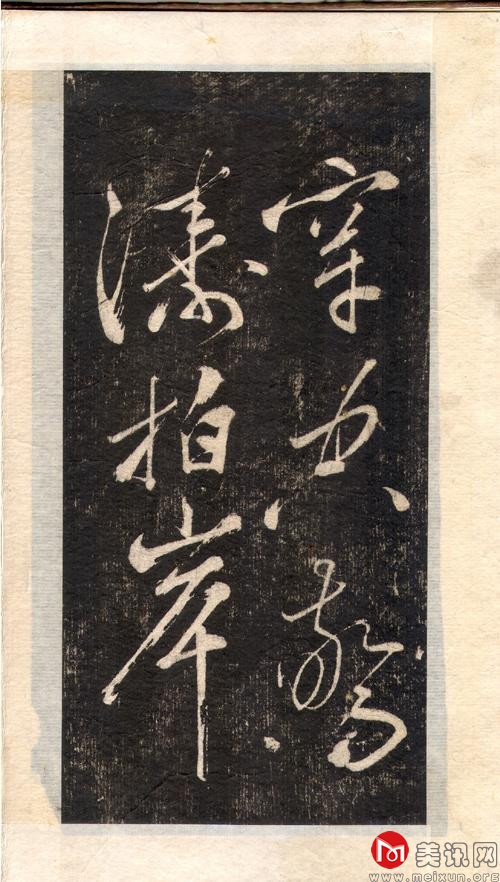 穿空驚
濤拍岸
美讯网
www.meixun.org